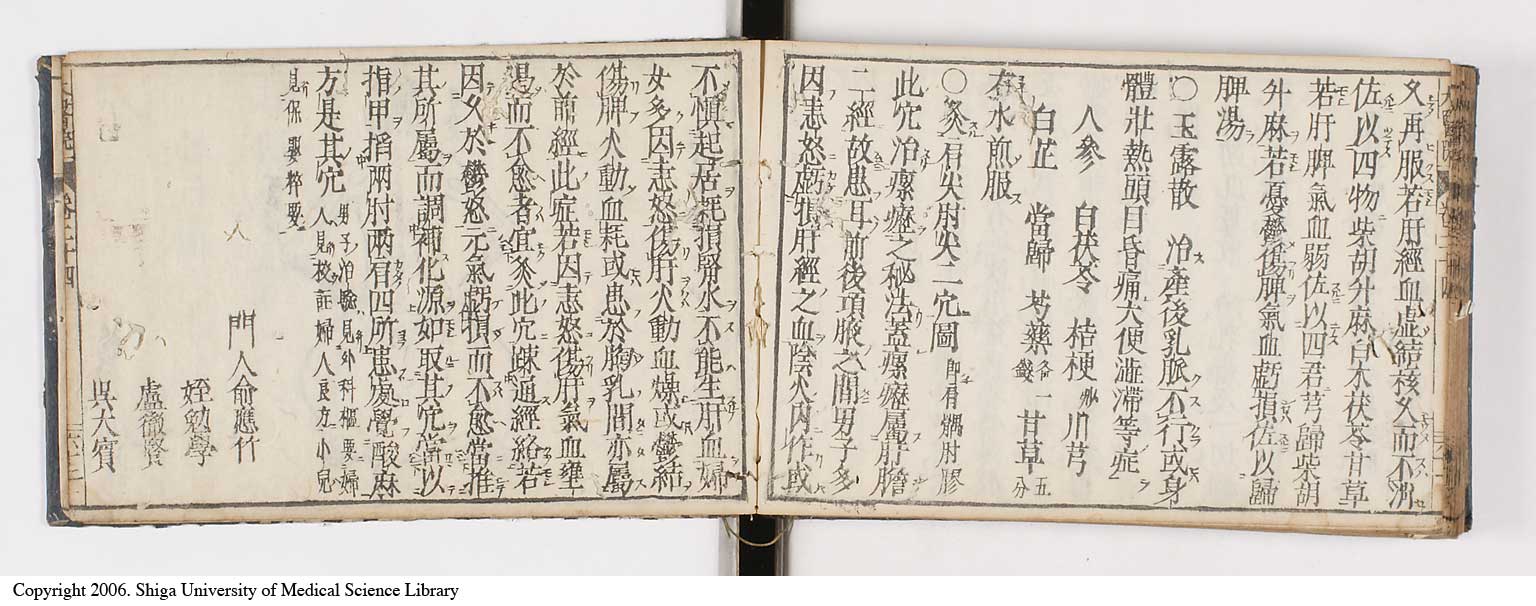 又再服若肝經血虛結核久而不消
佐以四物柴胡升麻白朮茯苓甘草
若肝脾氣血弱佐以四君芎歸柴胡
升麻若憂鬱傷脾氣血虧損佐以歸
脾湯
○玉露散 治產後乳脈不行或身
體壯熱頭目昏痛大便澁滯等症
人參 白伏苓 桔梗炒 川芎
白芷 當歸 芍藥各一錢 甘草五分
右水煎服
○灸肩尖肘尖二穴圖 即肩髃肘膠
此穴治瘰癧之秘法蓋瘰癧屬肝膽
二經故患耳前後項腋之間男子多
因恚怒虧損肝經之血陰火內作或
不慎起居耗損腎水不能生肝血婦
女多因恚怒傷肝火動血燥或鬱結
傷脾火動血耗或患於胸乳間亦屬
於前經此症若因恚怒傷肝氣血壅
遏而不愈者宜灸此穴疎通經絡若
因久於鬱怒元氣虧損而不愈當推
其所屬而調補化源如取其穴當以
指甲掐兩肘兩肩四所患處覺酸麻
方是其穴 男子治驗見外科樞要婦人見校註婦人良方小兒
見保嬰粹要
門人俞應竹
姪勉學
盧徹賢
吳大賓
卷二十四
Copyright 2006. Shiga University of Medical Science Library